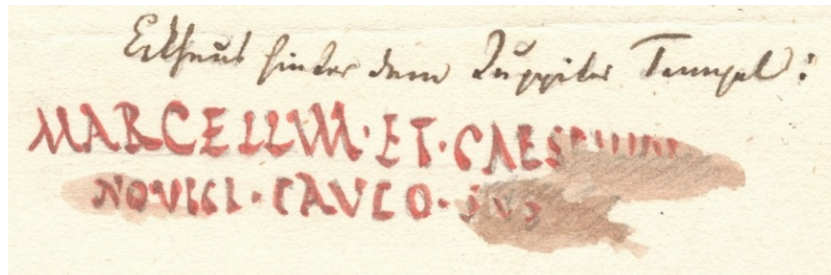 Eckhaus hinter dem Juppiter Tempel:
MARCELLVM·ET·CAES
NOVICI·PAVLO·